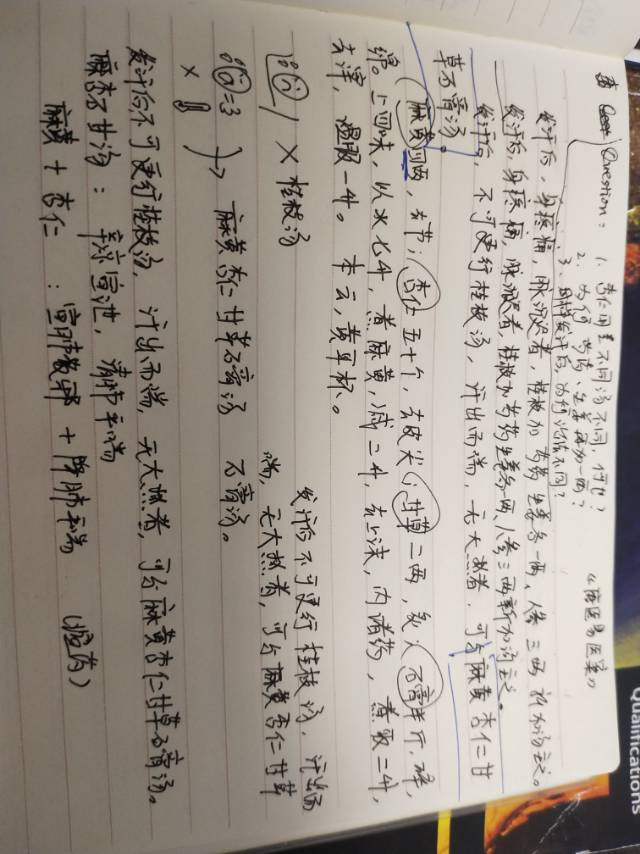 Question: 1. 杏仁用量不同汤不同,何也?
2. 为何芍药、生姜再加一两?
3. 同样发汗后,为何治法不同?
发汗后,身疼痛,脉沉迟者,桂枝加芍药生姜各一两、人参三两新加汤主之。
发汗后,身疼痛,脉沉迟者,桂枝加芍药生姜各一两人参三两新加汤主之。
发汗后,不可更行桂枝汤,汗出而喘,无大热者,可与麻黄杏仁甘
草石膏汤。
麻黄四两,去节;杏仁五十个,去皮尖;甘草二两,炙;石膏半斤,碎,
绵。上四味,以水七升,煮麻黄,减二升,去上沫,内诸药,煮取二升,
去滓,温服一升。本云,黄耳杯。
发汗后不可更行桂枝汤,汗出而
× 桂枝汤 喘,无大热者,可与麻黄杏仁甘草
石膏汤。
麻黄杏仁甘草石膏汤
×
发汗后不可更行桂枝汤,汗出而喘,无大热者,可与麻黄杏仁甘草石膏汤。
麻杏石甘汤:辛凉宣泄,清肺平喘
麻黄+杏仁:宣肺散邪+降肺平喘
Qualifications